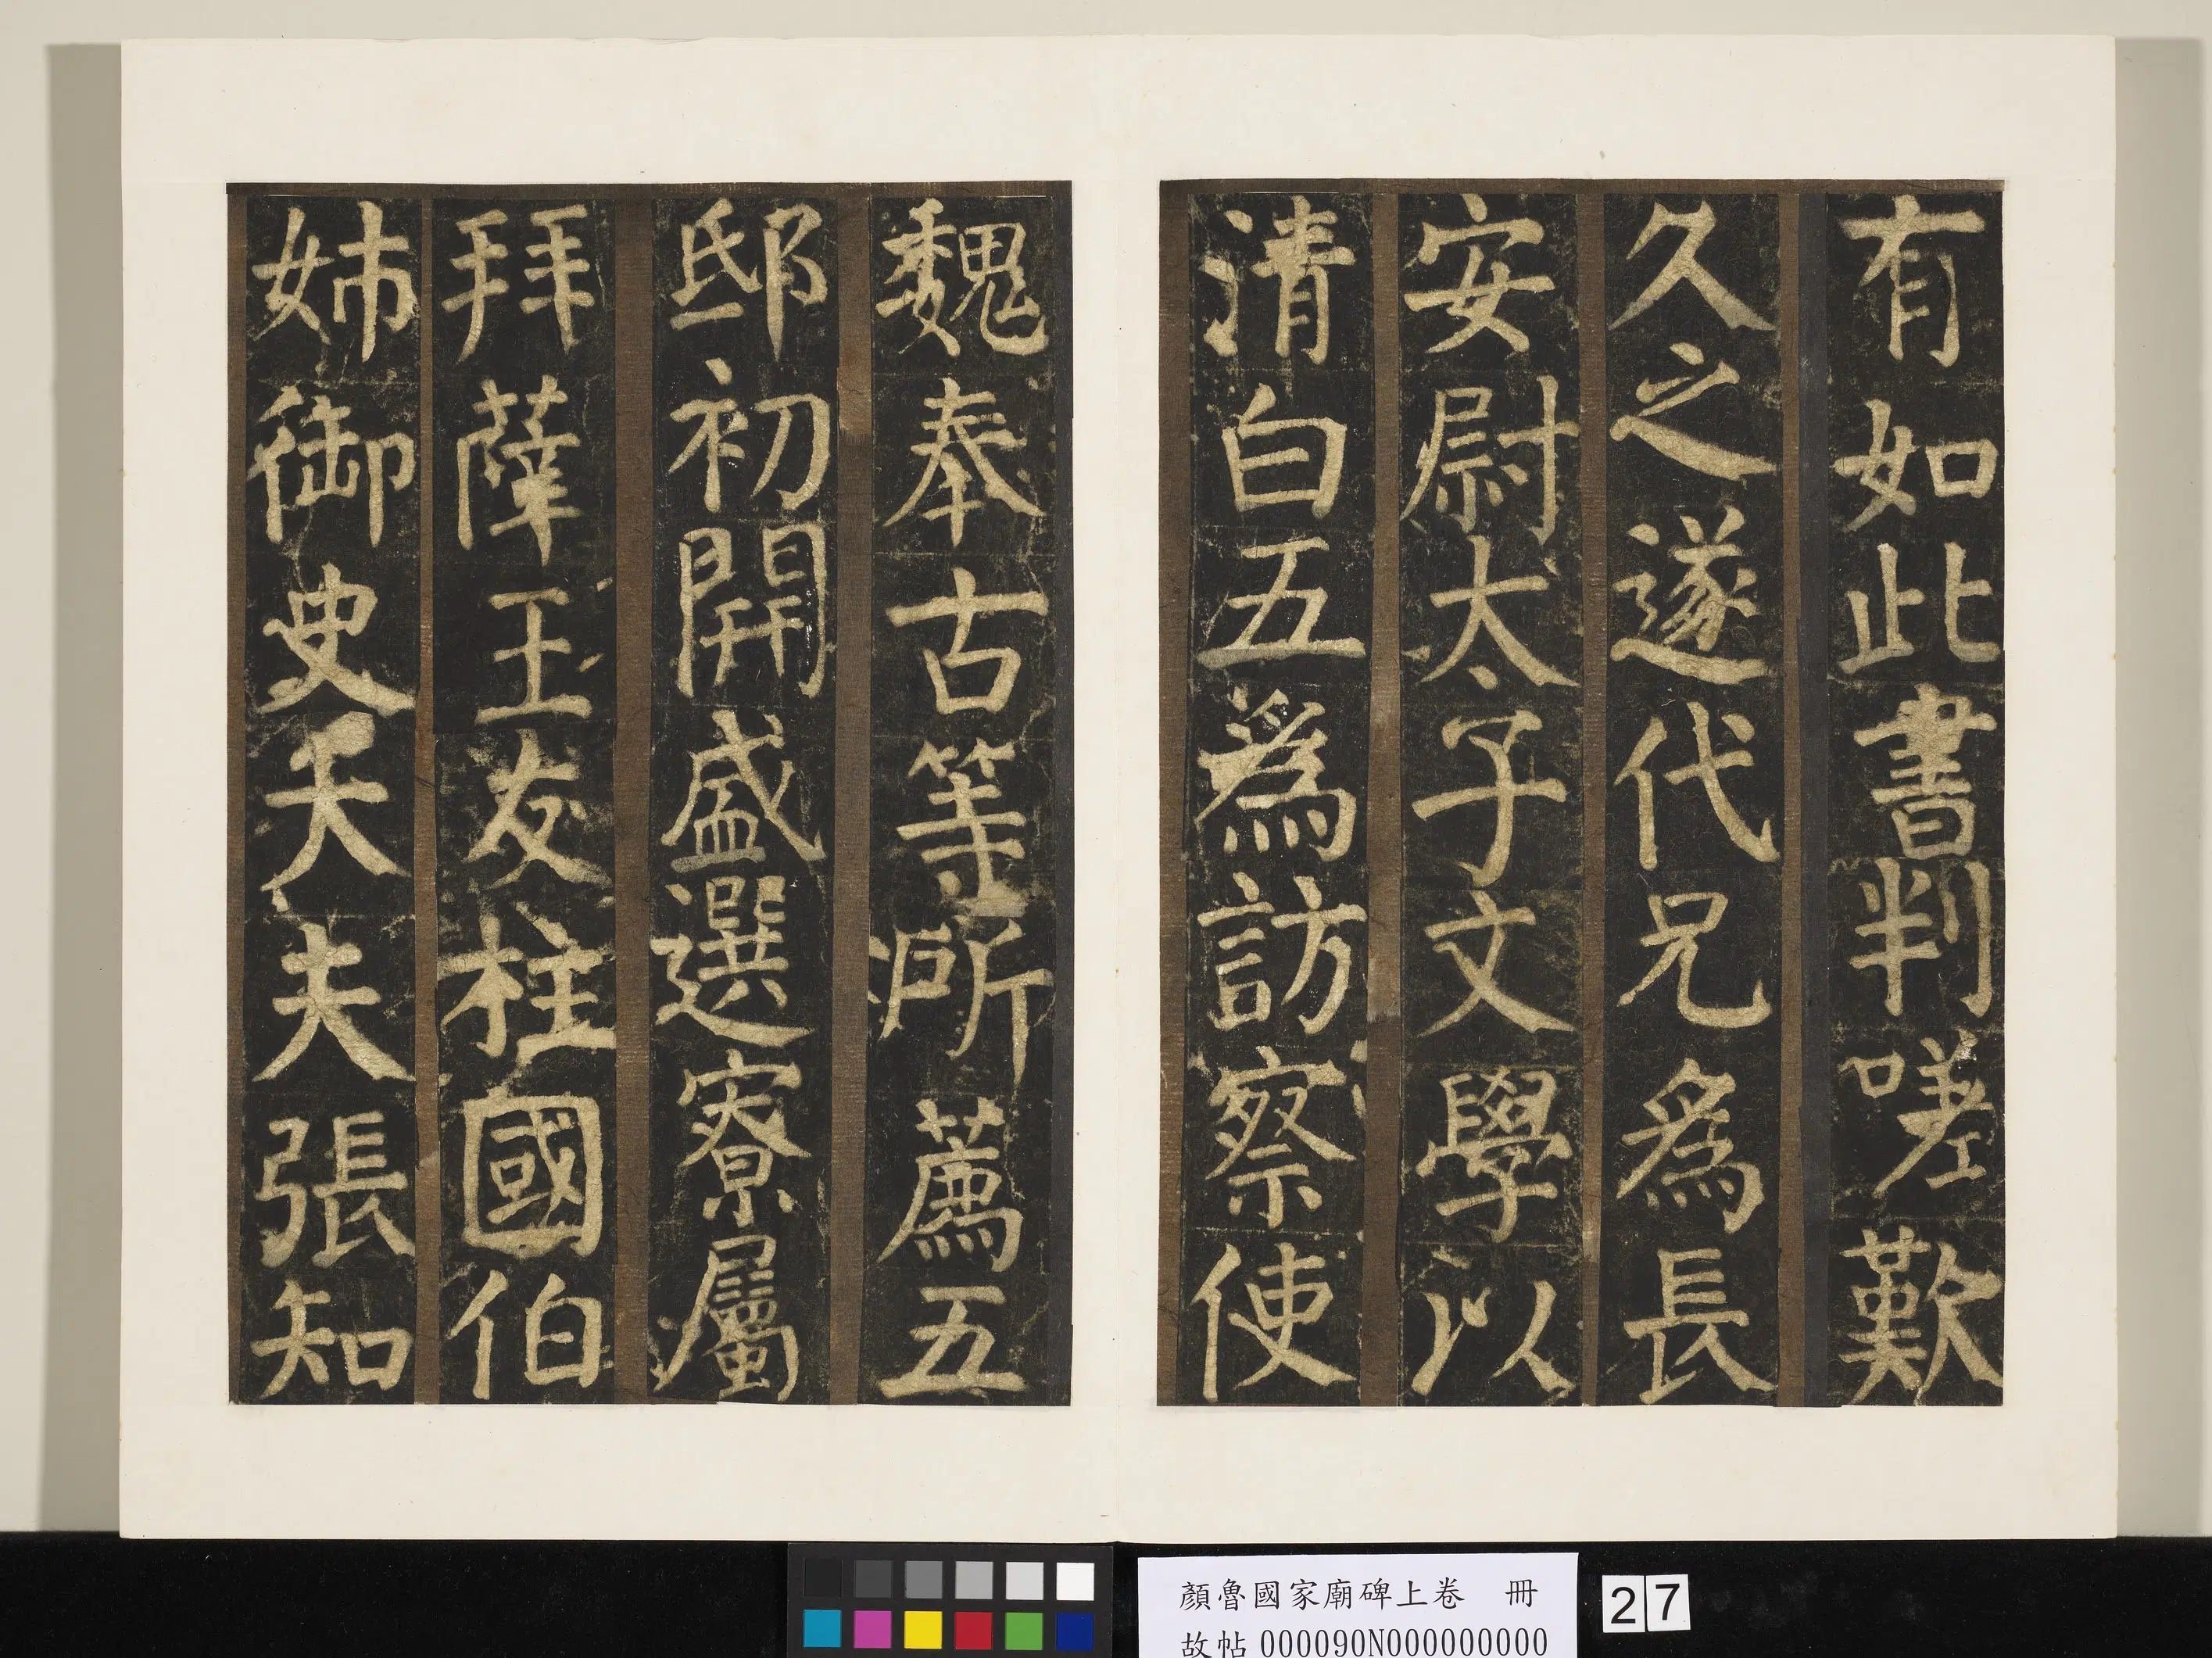 有如此書判嗟歎
久之遂代兄為長
安尉太子文學以
清白五為訪察使
魏奉古等所薦五
邸初開盛選寮属
拜薩王友柱國伯
姊御史大夫張知
顏魯國家廟碑上卷 冊
故帖000090N000000000
27